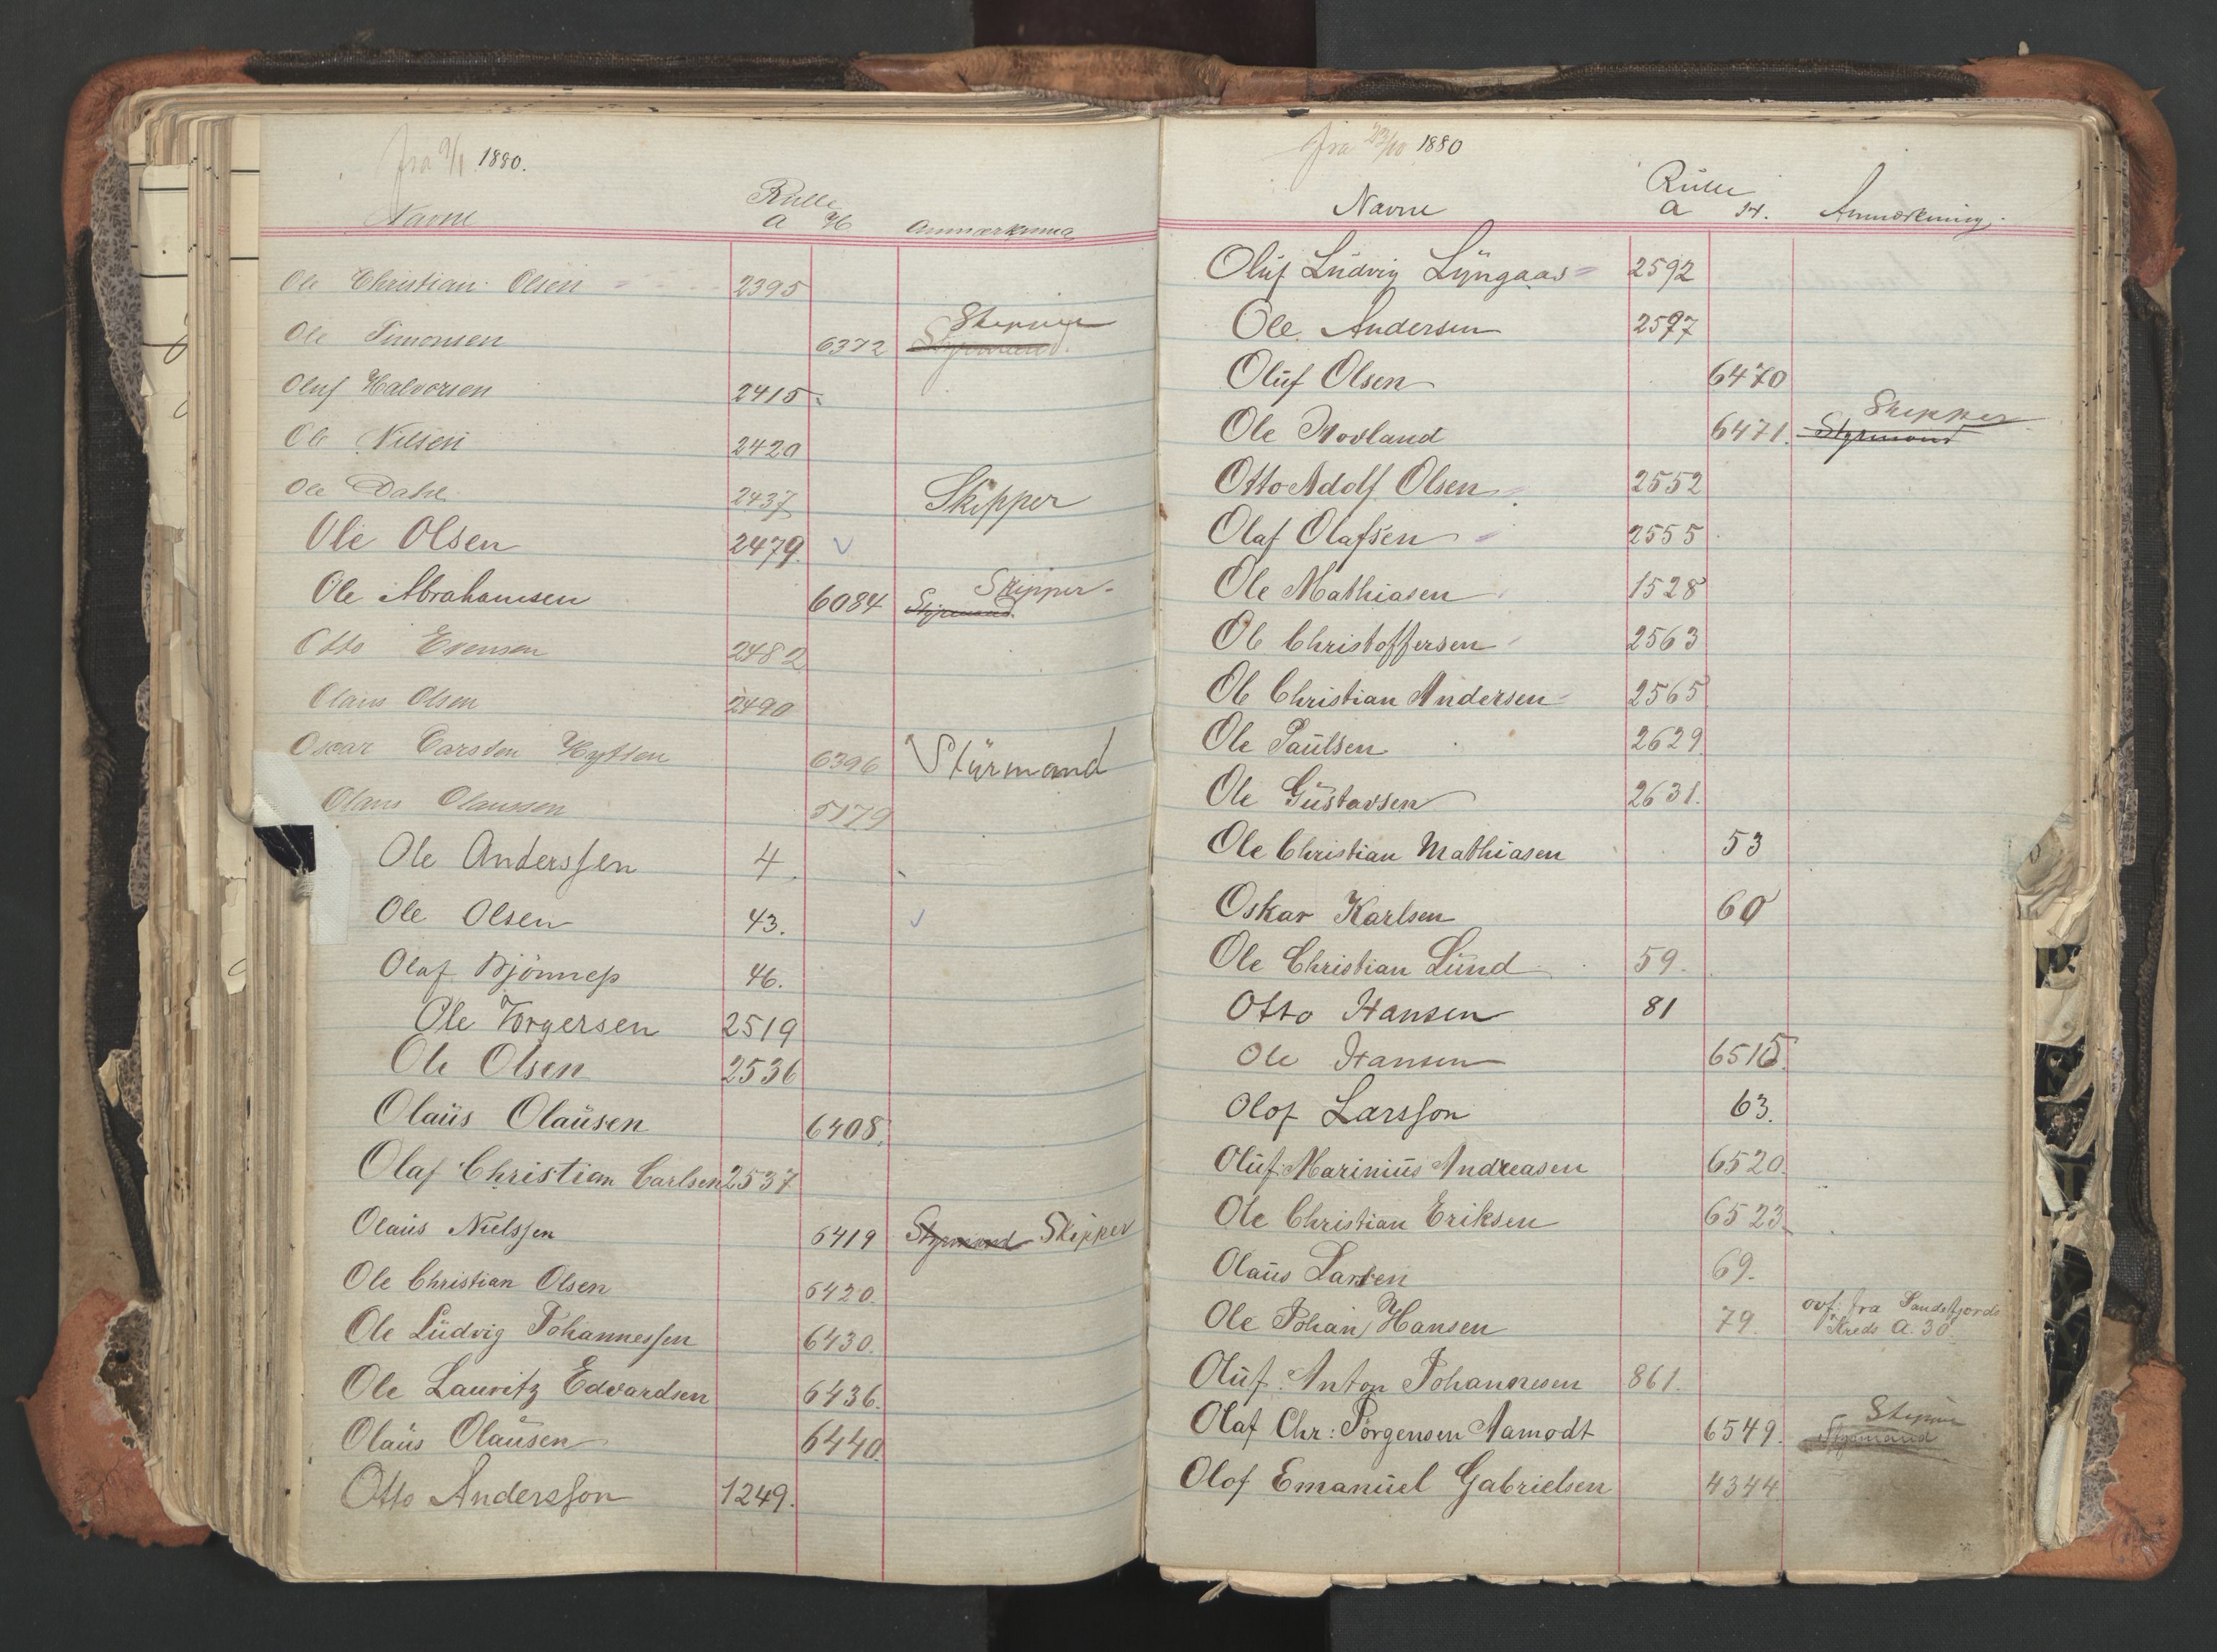 fra 9/1 1880.
Navne Rulle A H Anmærkning
Ole Christian Olsen 2395
Ole Simonsen 6372 Styrmand Skipper
Oluf Halvorsen 2415
Ole Nilsen 2420
Ole Dahl 2437 Skipper
Ole Olsen 2479. v
Ole Abrahamsen 6084 Styrmand Skipper
Otto Evensen 2482
Olaus Olsen 2490
Oscar Carsten Hytten 6396 Styrmand
Olaus Olaussen 5179
Ole Anderssen 4
Ole Olsen 43. v
Olaf Bjönness 46.
Ole Torgersen 2519
Ole Olsen 2536
Olaüs Olaüsen 6408.
Olaf Christian Carlsen 2537
Olaüs Nielssen 6419 Styrmand Skipper
Ole Christian Olsen 6420.
Ole Lüdvig Johannessen 6430.
Ole Lauritz Edvardsen 6436.
Olaüs Olaüsen 6440.
Otto Andersson 1249.
fra 23/10 1880
Navne Rulle A H. Anmærkning.
Olüf Lüdvig Lyngaas 2592
Ole Andersen 2597
Olüf Olsen 6470
Ole Hovland 6471. Styrmand Skipper
Otto Adolf Olsen 2552
Olaf Olafsen 2555
Ole Mathiasen 1528
Ole Christoffersen 2563
Ole Christian Andersen 2565
Ole Paülsen 2629
Ole Güstavsen 2631.
Ole Christian Mathiasen 53
Oskar Karlsen 60
Ole Christian Lünd 59.
Otto Hansen 81
Ole Hansen 6515.
Olof Larsson 63.
Olüf Mariniüs Andreasen 6520.
Ole Christian Eriksen 6523
Olaüs Larsen 69.
Ole Johan Hansen 79. ovf. fra Sandefjords Kreds A. 30
Olüf Anton Johannesen 861.
Olaf Chr: Jörgensen Aamodt 6549. Styrmand Skipper
Olof Emanüel Gabrielsen 4344